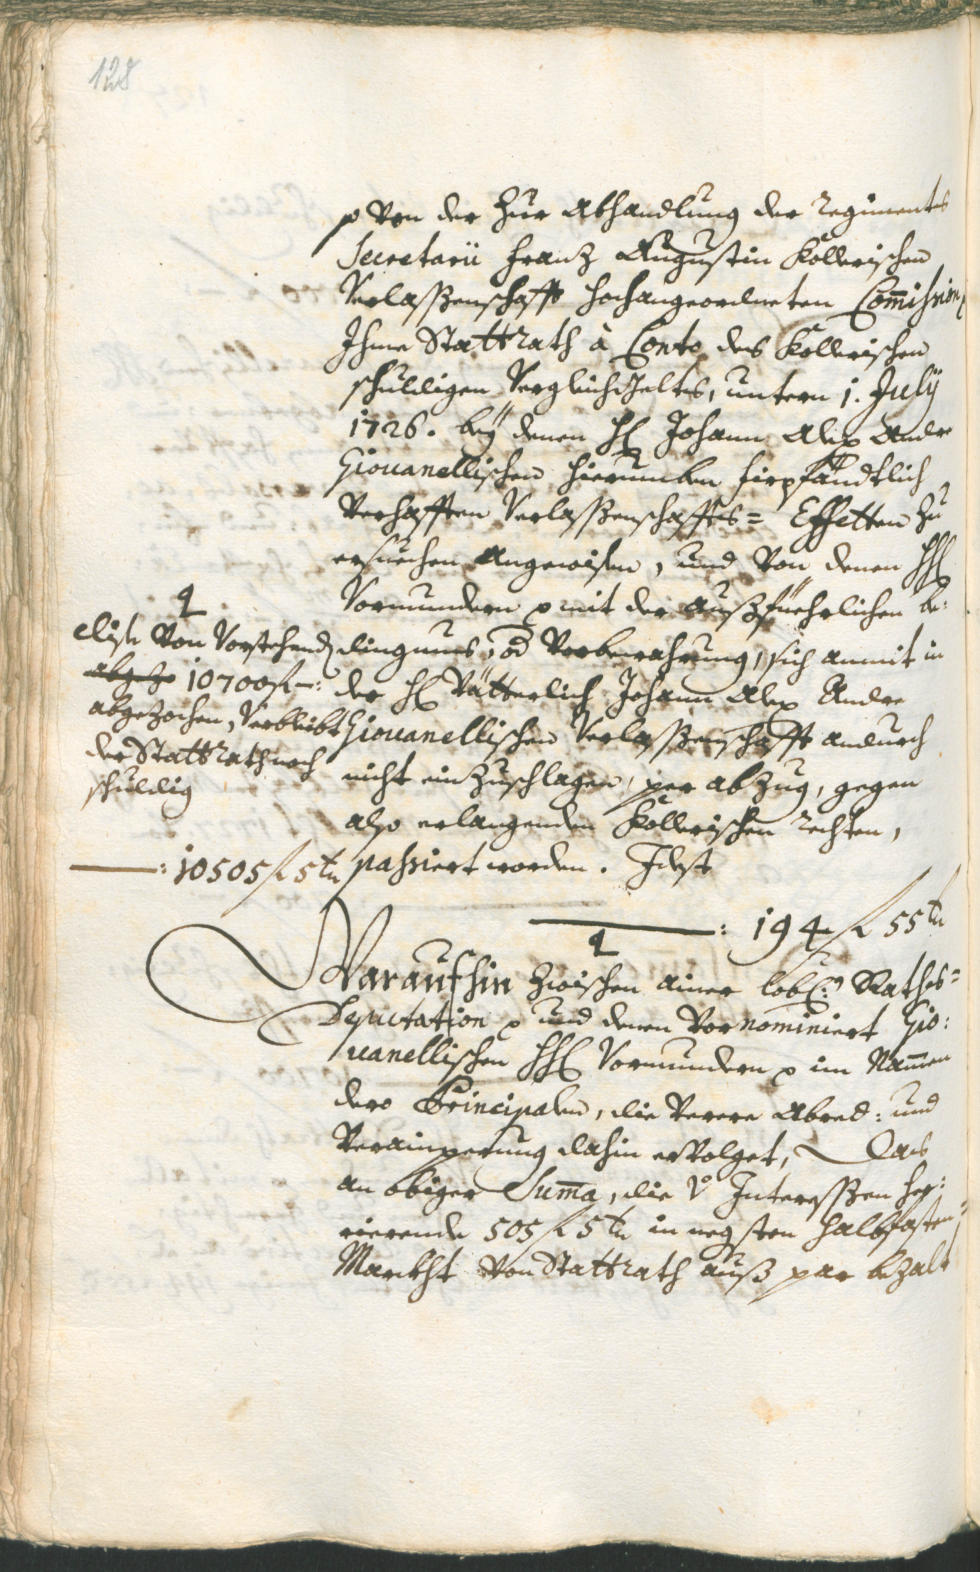 128
von der zur Abhandlung der Regiments
Secretarii Franz Augustin Kollerischen
Verlassenschafft hochangeordneten Commission
Ihme Stattrath à Conto des Kollerischen
schuldigen Vergleichsgeltes, untern 1. July
1726. bey denen H Johann Alex Andre
Giovanellischen hierumben firpfändtlich
verhafften Verlassenschaffts= Effetten zu
ersuechen angewisen, und von denen HH
Vormundern mit der außfüehrlichen be:
dingnus, od Verbewahrung, sich anmit in
der H Vätterlich Johann Alex Andre
Giovanellischen Verlassenschafft andurch
nicht einzuschlagen, per abzug, gegen
also erlangenden Kollerischen rechten,
passiert worden. Idest
: 194 f 55 kr
dise von vorstehend
10700 f —:
abgezochen, verbleibt
der Stattrath noch
schuldig
: 10505 f 5 kr
Waraufhin zwischen ainer lobl: Raths=
Deputation und denen vornominiert Gio:
vanellischen HH Vormundern im Namen
dero Principalen, die verere Abred: und
Verainperung dahin ervolget, Das
an obiger Suma, die Interessen her:
rierende 505 f 5 kr in negsten halbfasten
Marckht von Stattrath auß par bezalt